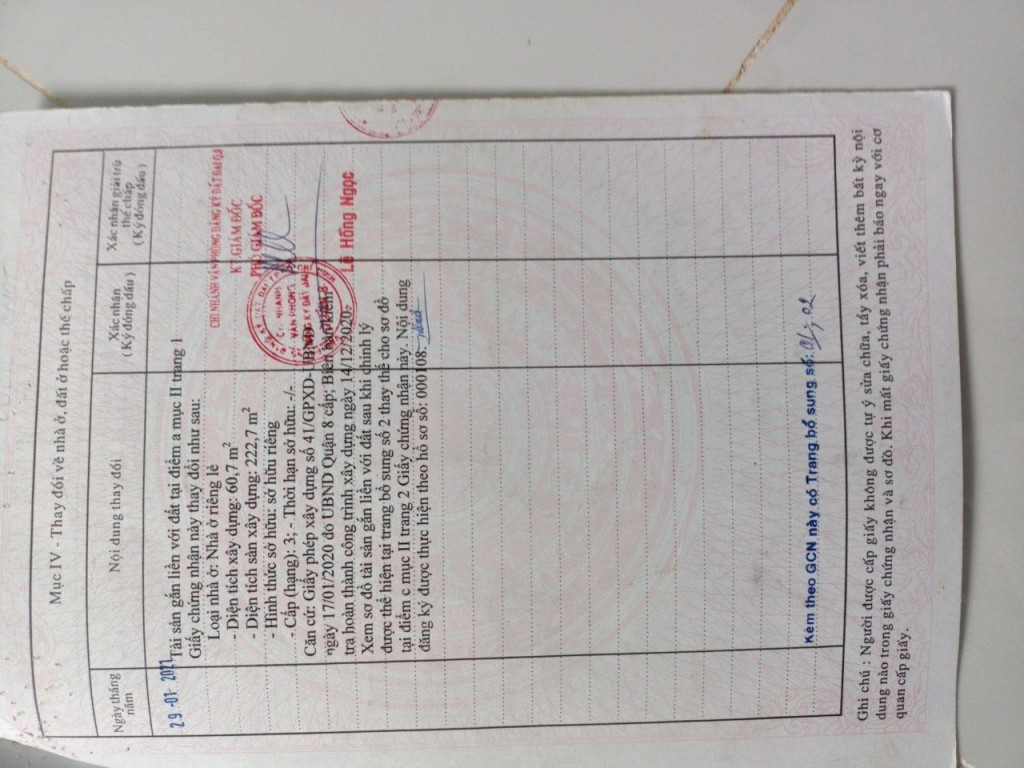 Mục IV - Thay đổi về nhà ở, đất ở hoặc thế chấp
Ngày tháng
năm
Nội dung thay đổi
Xác nhận
( Ký đóng dấu )
Xác nhận giải trừ
thế chấp
( Ký đóng dấu )
29-01-2021
Tài sản gắn liền với đất tại điểm a mục II trang 1
Giấy chứng nhận này thay đổi như sau:
Loại nhà ở: Nhà ở riêng lẻ
- Diện tích xây dựng: 60,7 m²
- Diện tích sàn xây dựng: 222,7 m²
- Hình thức sở hữu: sở hữu riêng
- Cấp (hạng): 3; - Thời hạn sở hữu: -/-.
Căn cứ: Giấy phép xây dựng số 41/GPXD-UBND
ngày 17/01/2020 do UBND Quận 8 cấp; Biên bản kiểm
tra hoàn thành công trình xây dựng ngày 14/12/2020;
Xem sơ đồ tài sản gắn liền với đất sau khi chỉnh lý
được thể hiện tại trang bổ sung số 2 thay thế cho sơ đồ
tại điểm c mục II trang 2 Giấy chứng nhận này. Nội dung
đăng ký được thực hiện theo hồ sơ số: 000108.
CHI NHÁNH VĂN PHÒNG ĐĂNG KÝ ĐẤT ĐAI Q.8
KT.GIÁM ĐỐC
PHÓ GIÁM ĐỐC
CHI NHÁNH
VĂN PHÒNG
ĐĂNG KÝ ĐẤT ĐAI
Lê Hồng Ngọc
Kèm theo GCN này có Trang bổ sung số: 01, 02
Ghi chú : Người được cấp giấy không được tự ý sửa chữa, tẩy xóa, viết thêm bất kỳ nội
dung nào trong giấy chứng nhận và sơ đồ. Khi mất giấy chứng nhận phải báo ngay với cơ
quan cấp giấy.